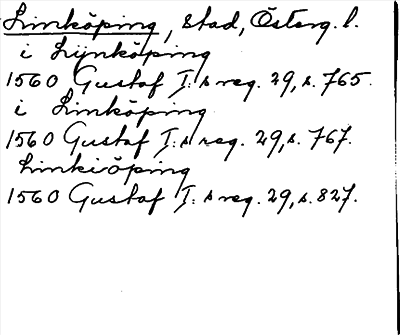 Linköping, stad, Österg. l.
i Lijnköping
1560 Gustaf I:s reg. 29, s. 765.
i Linköping
1560 Gustaf I:s reg. 29, s. 767.
Linkiöping
1560 Gustaf I:s reg. 29, s. 827.